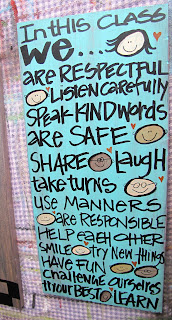 In THIS CLASS
we...
are RESPECTFUL
Listen carefully
SPEAK KIND words
are SAFE
SHARE laugh
take turns
use MANNERS
are RESPONSIBLE
HELP each other
SMILE try New things
HAVE FUN
challenge ourselves
try our BEST LEARN